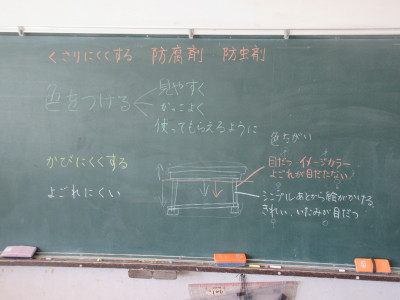 くさりにくくする 防腐剤 防虫剤
色をつける
見やすく
かっこよく
使ってもらえるように
色ちがい
かびにくくする
目だつ イメージカラー
よごれが目だたない
よごれにくい
シンプル あとから絵がかける
きれい、いたみが目だつ